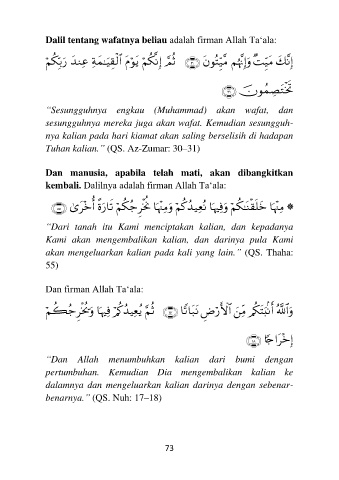 Dalil tentang wafatnya beliau adalah firman Allah Ta‘ala:
إِنَّكَ مَيِّتٌ وَإِنَّهُم مَّيِّتُونَ ۝ ثُمَّ إِنَّكُمْ يَوْمَ ٱلْقِيَـٰمَةِ عِندَ رَبِّكُمْ
تَخْتَصِمُونَ ۝
“Sesungguhnya engkau (Muhammad) akan wafat, dan
sesungguhnya mereka juga akan wafat. Kemudian sesungguh-
nya kalian pada hari kiamat akan saling berselisih di hadapan
Tuhan kalian.” (QS. Az-Zumar: 30–31)
Dan manusia, apabila telah mati, akan dibangkitkan
kembali. Dalilnya adalah firman Allah Ta‘ala:
۞ مِنْهَا خَلَقْنَـٰكُمْ وَفِيهَا نُعِيدُكُمْ وَمِنْهَا نُخْرِجُكُمْ تَارَةً أُخْرَىٰ ۝
“Dari tanah itu Kami menciptakan kalian, dan kepadanya
Kami akan mengembalikan kalian, dan darinya pula Kami
akan mengeluarkan kalian pada kali yang lain.” (QS. Thaha:
55)
Dan firman Allah Ta‘ala:
وَٱللَّهُ أَنۢبَتَكُم مِّنَ ٱلْأَرْضِ نَبَاتًا ۝ ثُمَّ يُعِيدُكُمْ فِيهَا وَيُخْرِجُكُمْ
إِخْرَاجًا ۝
“Dan Allah menumbuhkan kalian dari bumi dengan
pertumbuhan. Kemudian Dia mengembalikan kalian ke
dalamnya dan mengeluarkan kalian darinya dengan sebenar-
benarnya.” (QS. Nuh: 17–18)
73